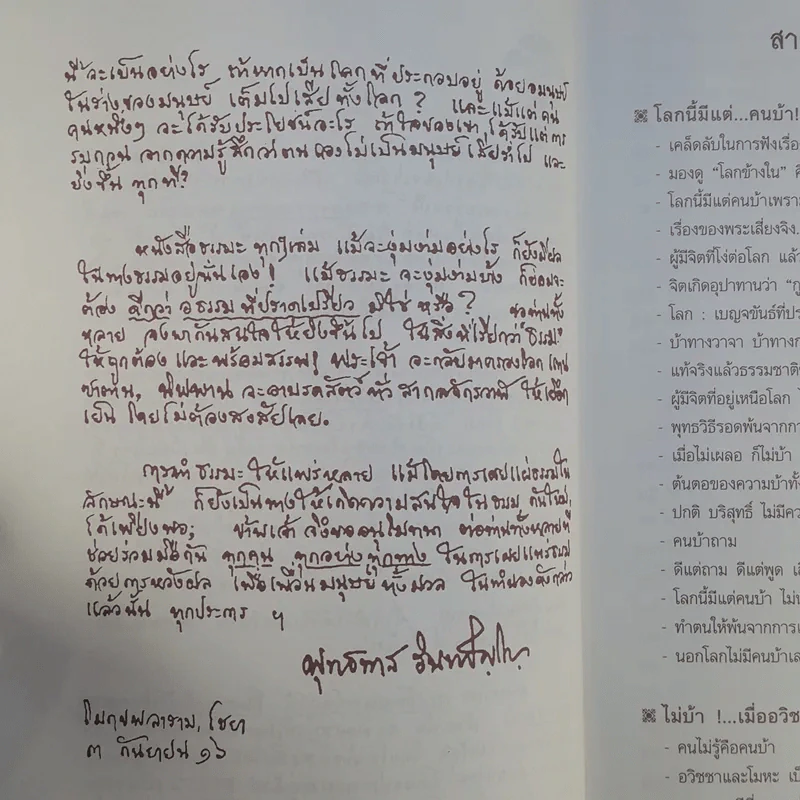 นี้ จะเป็นอย่างไร ถ้าหากเป็นโลกที่ ประกอบอยู่ ด้วยอมนุษย์
ในร่างของมนุษย์ เต็มไปเสียทั้งโลก ? และแม้แต่ คน
คนหนึ่งๆ จะได้รับประโยชน์อะไร ถ้าใจของเขา ได้รับแต่การ
รบกวน จากความรู้สึกว่าตน เองไม่เป็นมนุษย์ เสียร่ำไป และ
ยิ่งขึ้น ทุกที?
หนังสือธรรมะ ทุกๆเล่ม แม้จะงุ่มง่ามอย่างไร ก็ยังมีผล
ในทางธรรมอยู่นั่นเอง! แม้ธรรมะ จะงุ่มง่ามบ้าง ก็ย่อมจะ
ต้อง ดีกว่า อธรรม ที่ปราดเปรียว มิใช่ หรือ ? ขอท่านทั้ง
หลาย จงพากันสนใจให้ยิ่งขึ้นไป ในสิ่งที่เรียกว่า "ธรรม"
ให้ถูกต้อง และพร้อมสรรพ! พระเจ้า จะกลับมาครองโลก แทน
ซาตาน, นิพพาน จะอาบรดสัตว์ ทั่ว สากลจักรวาฬ ให้เยือก
เย็น โดยไม่ต้องสงสัยเลย.
การทำ ธรรมะ ให้แพร่หลาย แม้โดยการเผยแผ่ธรรมใน
ลักษณะนี้ ก็ยังเป็นทางให้เกิดความสนใจในธรรม กันใหม่,
ได้เพียงพอ; ข้าพเจ้า จึงขออนุโมทนา ต่อท่านทั้งหลายที่
ช่วยร่วมมือกัน ทุกคน ทุกอย่าง ทุกทาง ในการเผยแพร่ธรรม
ด้วยการหวังผล เพื่อเพื่อนมนุษย์ ทั้งมวล ในทำนองดังกล่าว
แล้วนั้น ทุกประการ ฯ
พุทธทาส อินทปัญโญ
โมกขพลาราม, ไชยา
๓ กันยายน ๑๖
สา
โลกนี้มีแต่...คนบ้า!
- เคล็ดลับในการฟังเรื่อง
- มองดู “โลกข้างใน”
- โลกนี้มีแต่คนบ้าเพราะ
- เรื่องของพระเสี่ยงจิง.
- ผู้มีจิตที่โง่ต่อโลก แล้ว
- จิตเกิดอุปาทานว่า “กู
- โลก : เบญจขันธ์ที่ประ
- บ้าทางวาจา บ้าทางก
- แท้จริงแล้วธรรมชาติ
- ผู้มีจิตที่อยู่เหนือโลก
- พุทธวิธีรอดพ้นจากกา
- เมื่อไม่เผลอ ก็ไม่บ้า
- ต้นตอของความบ้าทั้ง
- ปกติ บริสุทธิ์ ไม่มีคว
- คนบ้าถาม
- ดีแต่ถาม ดีแต่พูด
- โลกนี้มีแต่คนบ้า ไม่
- ทำตนให้พ้นจากการเ
- นอกโลกไม่มีคนบ้าเล
ไม่บ้า !...เมื่ออวิช
- คนไม่รู้คือคนบ้า
- อวิชชาและโมหะ เป็